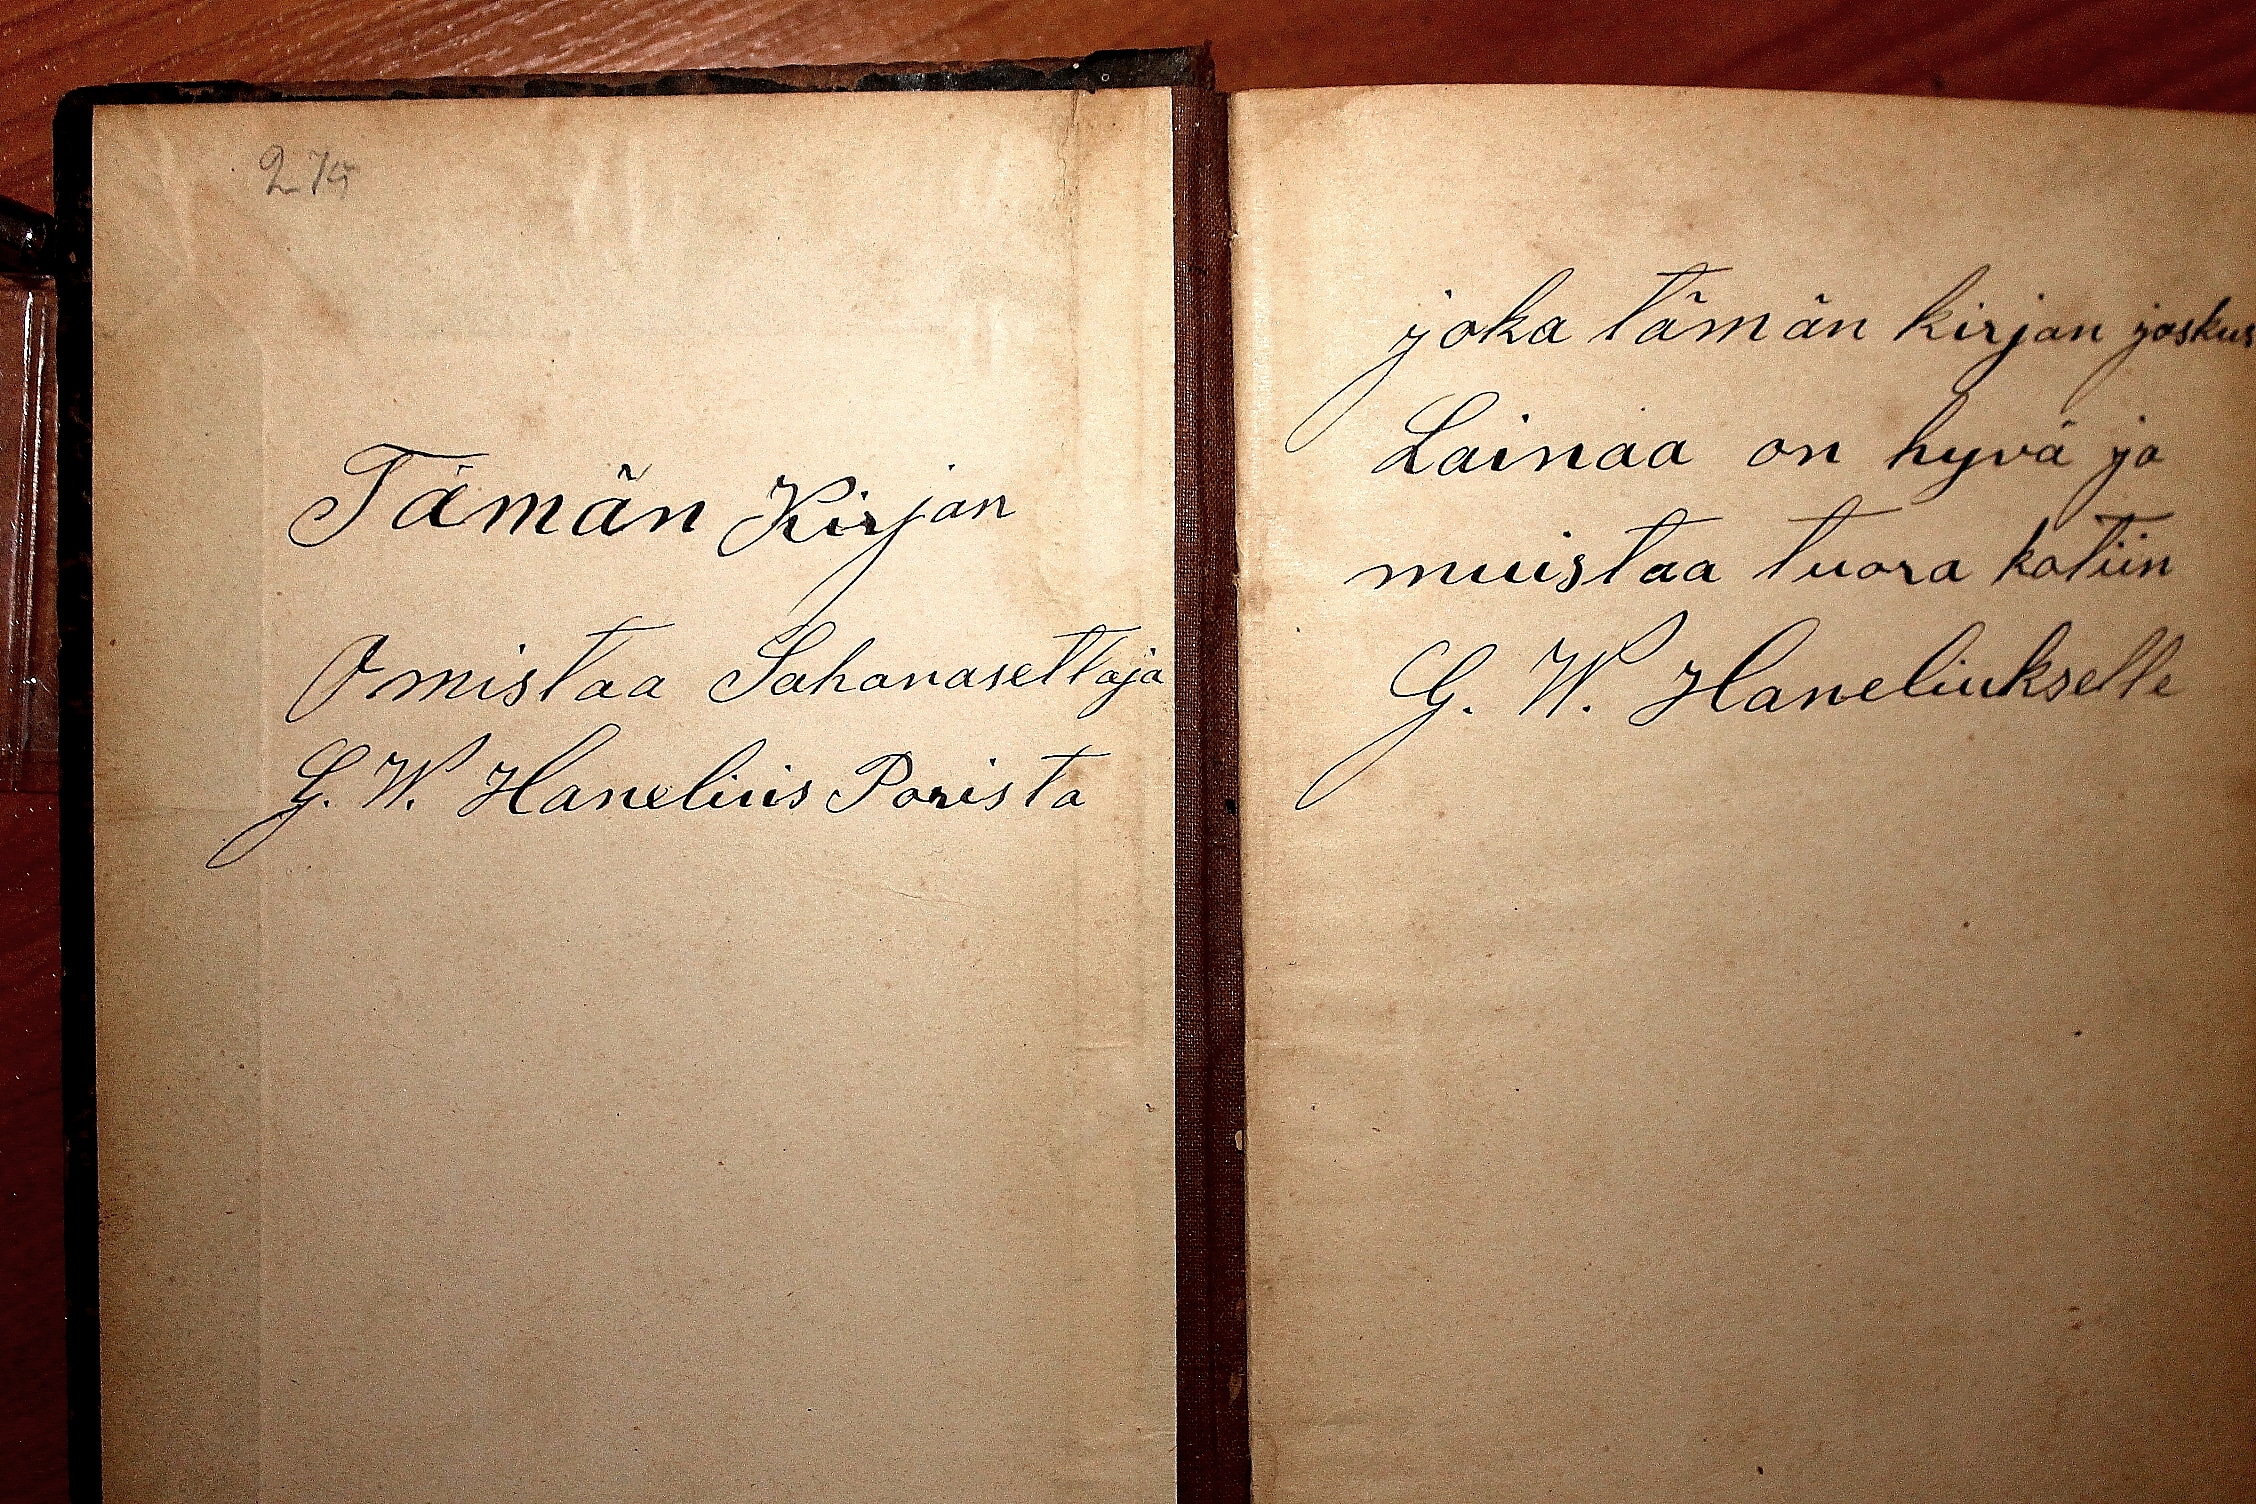 275
Tämän Kirjan
Omistaa Sahanasettaja
G. W. Hanelius Porista
joka tämän kirjan joskus
Lainaa on hyvä ja
muistaa tuora kotiin
G. W. Haneliukselle